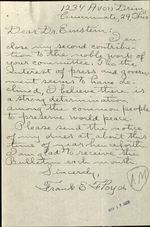 1274 Avon Drive,
Cincinnati, 29, Ohio
Dear Dr. Einstein: I en-
close my second contribu-
tion to the noble work of
your committee. The
interest of press and govern-
ment seems to have de-
clined, I believe there is
a strong determination
among the common people
to preserve world peace.
Please send the notice
of my dues at about this
time of year henceforth.
I am glad to receive the
Bulletin each month.
Sincerely,
Frank S. Floyd